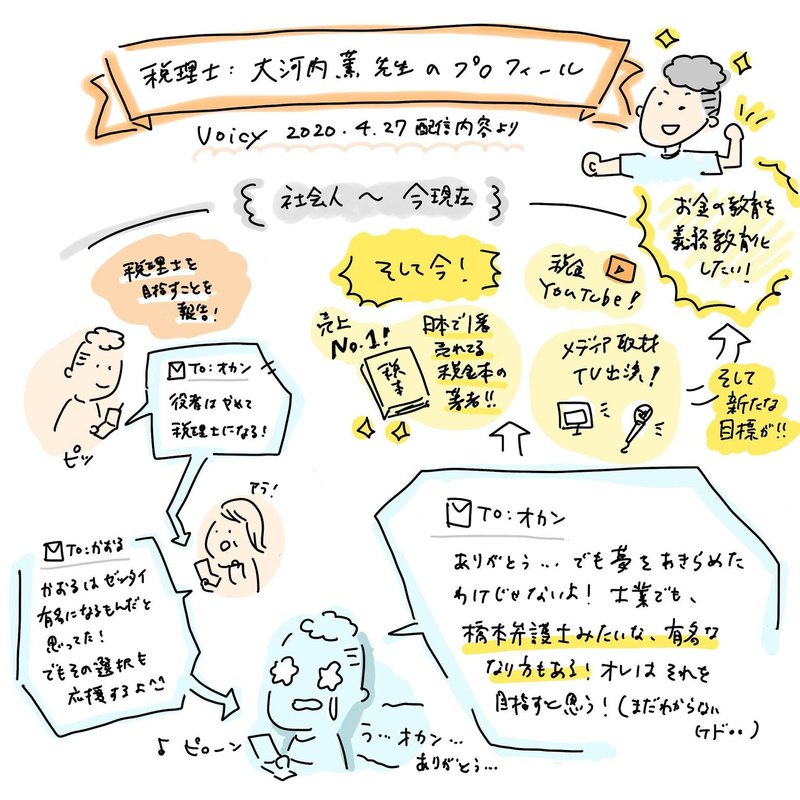 税理士：大河内薫先生のプロフィール
Voicy 2020.4.27 配信内容より
社会人 〜 今現在
税理士を
目指すことを
報告！
To：オカン
役者はやめて
税理士になる！
ピッ
アラ！
To：かおる
かおるはゼッタイ
有名になるもんだと
思ってた！
でもその選択も
応援するよ^^
♪ ピローン
う…オカン…
ありがとう…
To：オカン
ありがとう… でも夢をあきらめた
わけじゃないよ！ 士業でも、
橋本弁護士みたいな、有名な
なり方もある！オレはそれを
目指すと思う！（まだわからない
けド••）
そして今！
売上
No.1！
税本
日本で1番
売れてる
税金本の
著者!!
税金
YouTube！
メディア取材
TV出演！
そして
新たな
目標が!!
お金の教育を
義務教育化
したい！